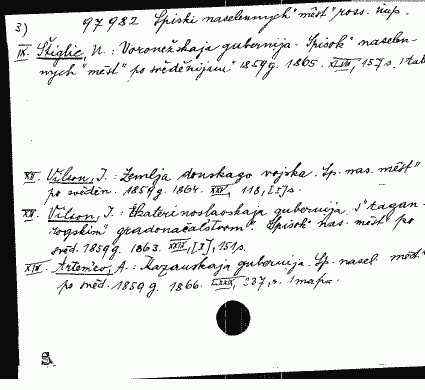 3) 97982 Spiski naselennych" měst" ross. imp.
IX. Štiglic, N.: Voronežskaja gubernija. Spisok" naselen-
nych" měst" po svěděnijam" 1859g. 1865. XLVIII, 157s. 1 tab
XII. Vilson, I.: Zemlja donskago vojska. Sp. nas. měst"
po svěděn. 1859g. 1864. XXX, 118, [I]s.
Vilson, I.: Ekaterinoslavskaja gubernija s" tagan-
rogskim" gradonačalstvom". Spisok" nas. měst" po
svěd. 1859g. 1863. [I], 151s.
XIV. Artem'ev, A.: Kazanskaja gubernija. Sp. nasel. měst"
po svěd. 1859g. 1866. 237, s. 1 mapa.